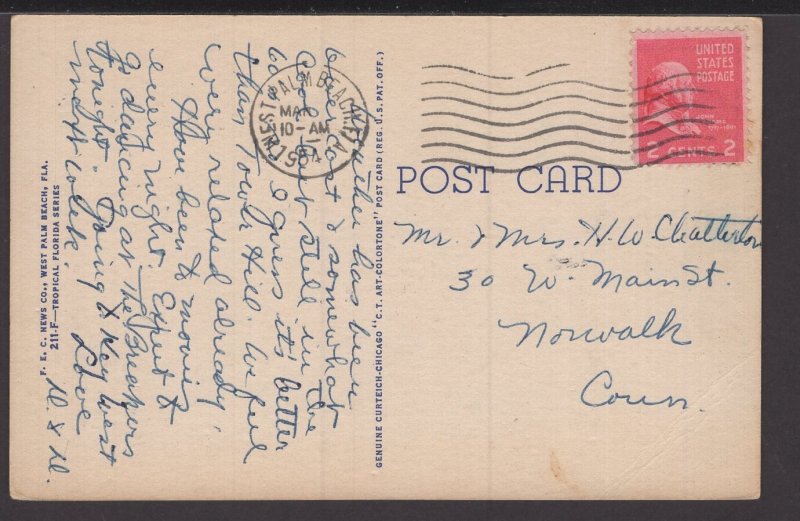 Weather has been
& somewhat
cool but still in the
60's. I guess it's better
than Tower Hill. We feel
very relaxed already.
Have been to movies
every night. Expect to
go dancing at The Breakers
tonight. Going to Key West
next week.
Love
D. & D.
P. E. C. NEWS CO., WEST PALM BEACH, FLA.
211-F—TROPICAL FLORIDA SERIES
GENUINE CURTEICH-CHICAGO "C.T. ART-COLORTONE" POST CARD (REG. U.S. PAT. OFF.)
WEST PALM BEACH, FLA.
MAR
10-AM
1954
UNITED
STATES
POSTAGE
JOHN ADAMS
1797-1801
2 CENTS 2
POST CARD
Mr. & Mrs. H. W. Chatterton
30 W. Main St.
Norwalk
Conn.